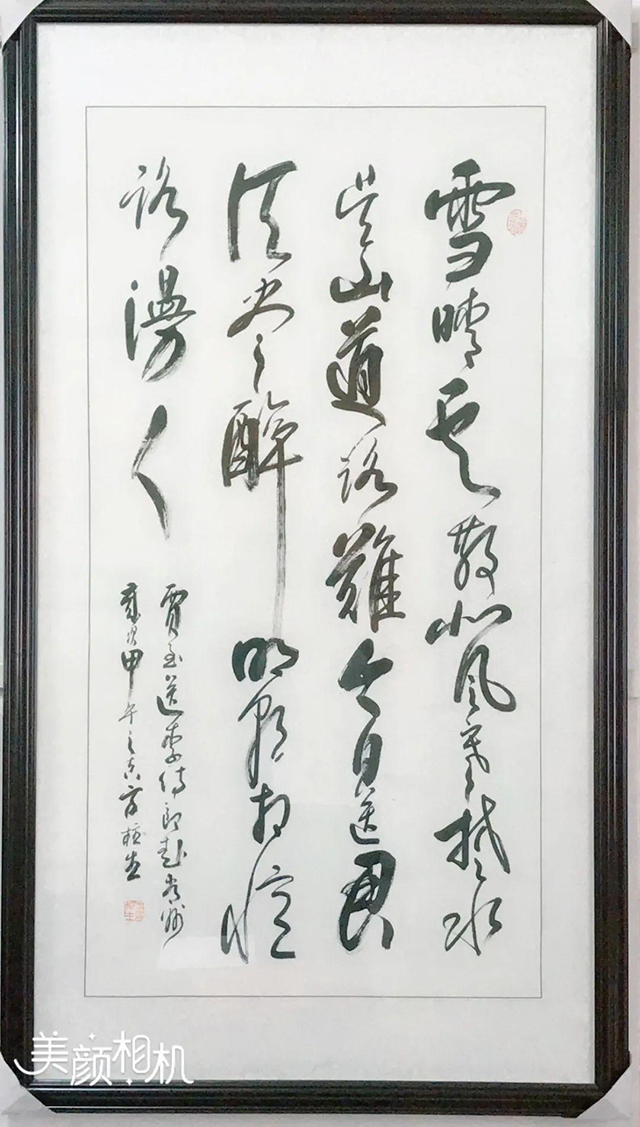 雪晴云散北風寒楚水
吴山道路難今日送君
須尽醉明朝相憶
路漫々
賈至送李侍郎赴常州
歲次甲午之
美颜相机